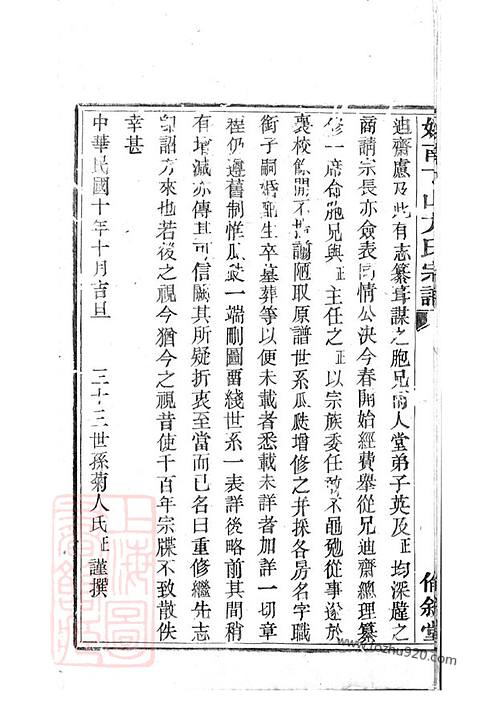 迪齋慮及此有志纂葺謀之胞兄雨人堂弟子英及正均深韙之
商請宗長亦僉表同情公決今春開始經費舉從兄迪齋總理纂
修一席命胞兄與正主任之正以宗族委任敢不黽勉從事遂於
裏校餘閒不揣譾陋取原譜世系瓜瓞增修之并採各房名字職
銜子嗣婚配生卒墓葬等以便未載者悉載未詳者加詳一切章
程仍遵舊制惟瓜瓞一端刪圖畱綫世系一表詳後略前其間稍
有增減亦傳其可信闕其所疑折衷至當而已名曰重修繼先志
卽詔方來也若後之視今猶今之視昔使千百年宗牒不致散佚
幸甚
中華民國十年十月吉旦 三十三世孫菊人氏正謹撰
南 山方氏宗譜
倫敘堂
上海圖書館藏
www.fozhu920.com